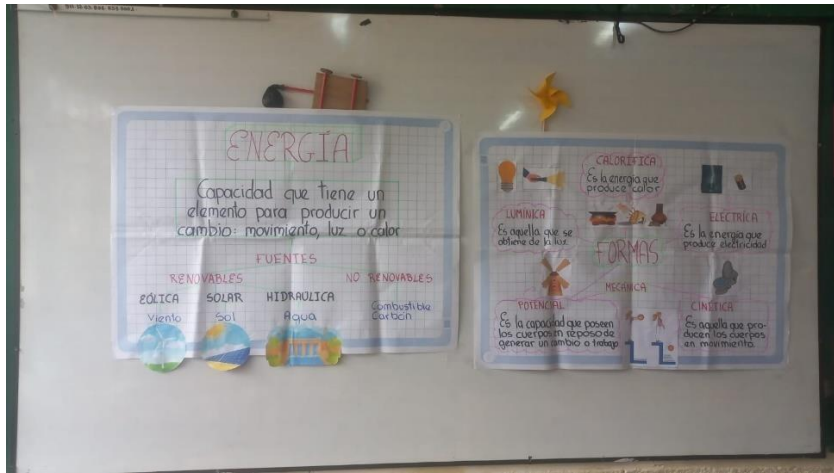 ENERGIA
Capacidad que tiene un
elemento para producir un
cambio: movimiento, luz o calor
FUENTES
RENOVABLES
NO RENOVABLES
EÓLICA SOLAR HIDRAÚLICA
Viento Sol Agua
Combustible
Carbón
CALORÍFICA
Es la energía que
produce calor
LUMÍNICA
Es aquella que se
obtiene de la luz
ELECTRÍCA
Es la energía que
produce electricidad
FORMAS
MECÁNICA
POTENCIAL
Es la capacidad que poseen
los cuerpos en reposo de
generar un cambio o trabajo
CINÉTICA
Es aquella que pro-
ducen los cuerpos
en movimiento